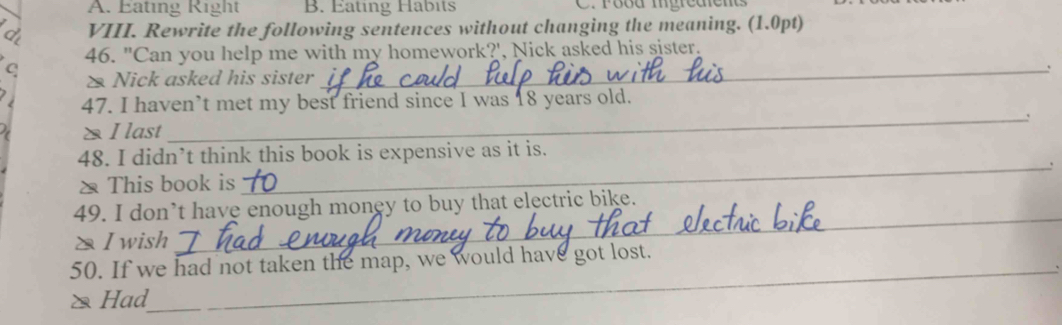 A. Eating Right B. Eating Habits C. Food Ingredients
VIII. Rewrite the following sentences without changing the meaning. (1.0pt)
46. "Can you help me with my homework?', Nick asked his sister.
Nick asked his sister if he could help him with his
47. I haven't met my best friend since I was 18 years old.
I last
48. I didn't think this book is expensive as it is.
This book is to
49. I don't have enough money to buy that electric bike.
I wish I had enough money to buy that electric bike
50. If we had not taken the map, we would have got lost.
Had